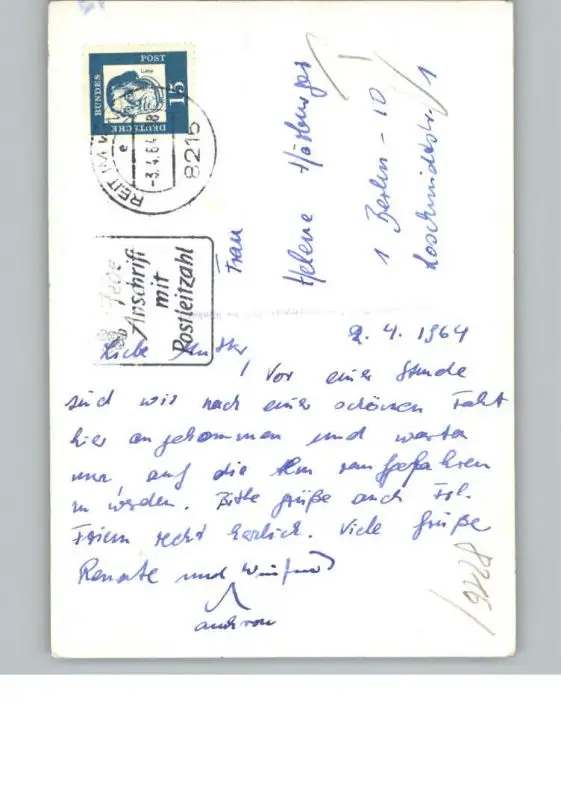 BUNDES
POST
DEUTSCHE
15
Luther
REIT IM W
e
-3.4.64
8216
Jede
Anschrift
mit
Postleitzahl
Frau
Helene
1 Berlin - 10
Loschmidtstr. 1
2. 4. 1964
Liebe Mutter,
Vor einer Stunde
sind wir nach einer schönen Fahrt
hier angekommen und warten
nur, auf die Alm raufgefahren
zu werden. Bitte grüße auch Frl.
recht herzlich. Viele Grüße
Renate und Winfried
auch von